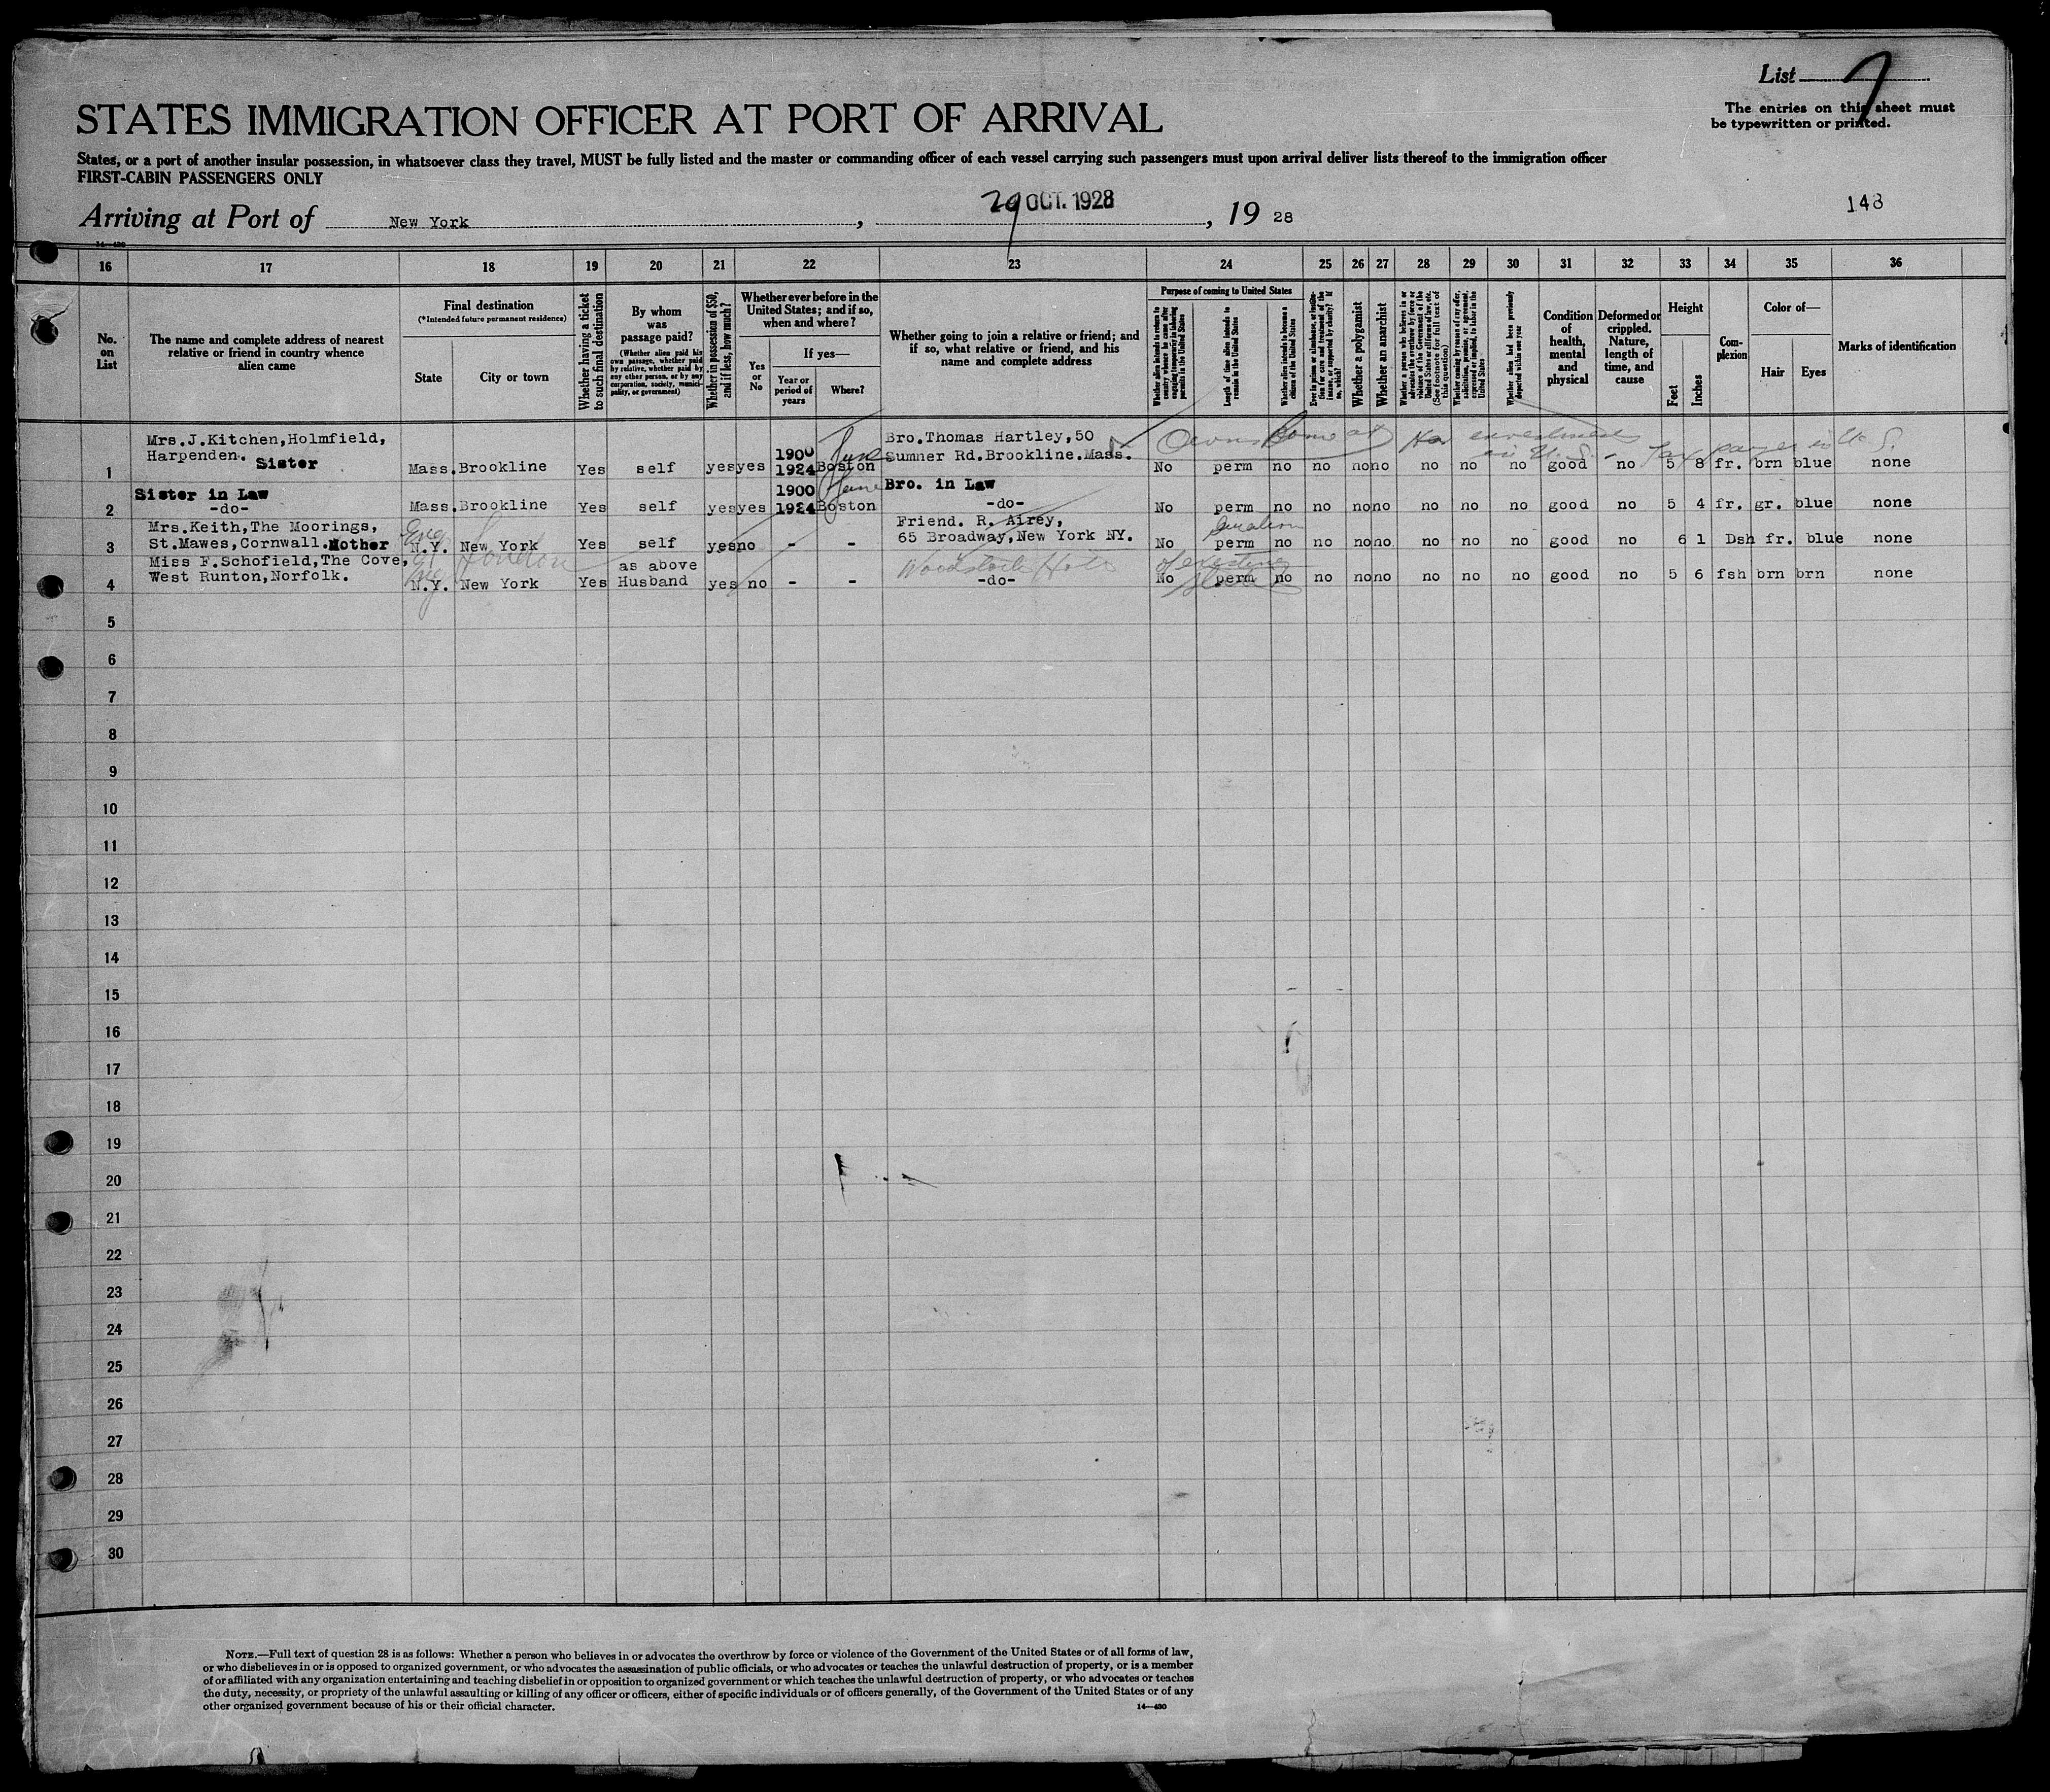 List 7
The entries on this sheet must
be typewritten or printed.
STATES IMMIGRATION OFFICER AT PORT OF ARRIVAL
States, or a port of another insular possession, in whatsoever class they travel, MUST be fully listed and the master or commanding officer of each vessel carrying such passengers must upon arrival deliver lists thereof to the immigration officer
FIRST-CABIN PASSENGERS ONLY
Arriving at Port of New York, 29 OCT. 1928, 19 28
148
14—430
16 17 18 19 20 21 22 23 24 25 26 27 28 29 30 31 32 33 34 35 36
No. on List
The name and complete address of nearest
relative or friend in country whence
alien came
Final destination
(*Intended future permanent residence)
State
City or town
Whether having a ticket
to such final destination
By whom
was
passage paid?
(Whether alien paid his
own passage, whether paid
by relative, whether paid by
any other person, or by any
corporation, society, munici-
pality, or government)
Whether in possession of $50,
and if less, how much?
Whether ever before in the
United States; and if so,
when and where?
Yes
or
No
If yes—
Year or
period of
years
Where?
Whether going to join a relative or friend; and
if so, what relative or friend, and his
name and complete address
Purpose of coming to United States
Whether alien intends to return to
country whence he came after
engaging temporarily in laboring
pursuits in the United States
Length of time alien intends to
remain in the United States
Whether alien intends to become a
citizen of the United States
Ever in prison or almshouse, or institu-
tion for care and treatment of the
insane, or supported by charity? If
so, which?
Whether a polygamist
Whether an anarchist
Whether a person who believes in or
advocates the overthrow by force or
violence of the Government of the
United States or all forms of law, etc.
(See footnote for full text of
this question)
Whether coming by reason of any offer,
solicitation, promise, or agreement,
expressed or implied, to labor in the
United States
Whether alien had been previously
deported within one year
Condition
of
health,
mental
and
physical
Deformed or
crippled.
Nature,
length of
time, and
cause
Height
Feet
Inches
Com-
plexion
Color of—
Hair
Eyes
Marks of identification
Mrs.J.Kitchen,Holmfield,
Harpenden. Sister
1 Mass. Brookline Yes self yes yes 1900 1924 June Boston
Bro.Thomas Hartley,50
Sumner Rd.Brookline.Mass.
Owns home at
investments
in U.S. - Tax payer in U.S.
No perm no no no no no no no good no 5 8 fr. brn blue none
Sister in Law
2 -do- Mass. Brookline Yes self yes yes 1900 1924 June Boston
Bro. in Law
-do- No perm no no no no no no no good no 5 4 fr. gr. blue none
Mrs.Keith,The Moorings,
St.Mawes,Cornwall. Mother
3 Eng N.Y. New York London Yes self yes no - -
Friend. R. Airey,
65 Broadway,New York NY.
No perm no no no no no no no good no 6 1 Dsh fr. blue none
Miss F.Schofield,The Cove,
West Runton,Norfolk.
4 Eng N.Y. New York Yes as above Husband yes no - -
Woodstock Hotel
-do- No perm no no no no no no no good no 5 6 fsh brn brn none
5
6
7
8
9
10
11
12
13
14
15
16
17
18
19
20
21
22
23
24
25
26
27
28
29
30
NOTE.—Full text of question 28 is as follows: Whether a person who believes in or advocates the overthrow by force or violence of the Government of the United States or of all forms of law,
or who disbelieves in or is opposed to organized government, or who advocates the assassination of public officials, or who advocates or teaches the unlawful destruction of property, or is a member
of or affiliated with any organization entertaining and teaching disbelief in or opposition to organized government or which teaches the unlawful destruction of property, or who advocates or teaches
the duty, necessity, or propriety of the unlawful assaulting or killing of any officer or officers, either of specific individuals or of officers generally, of the Government of the United States or of any
other organized government because of his or their official character.
14—430